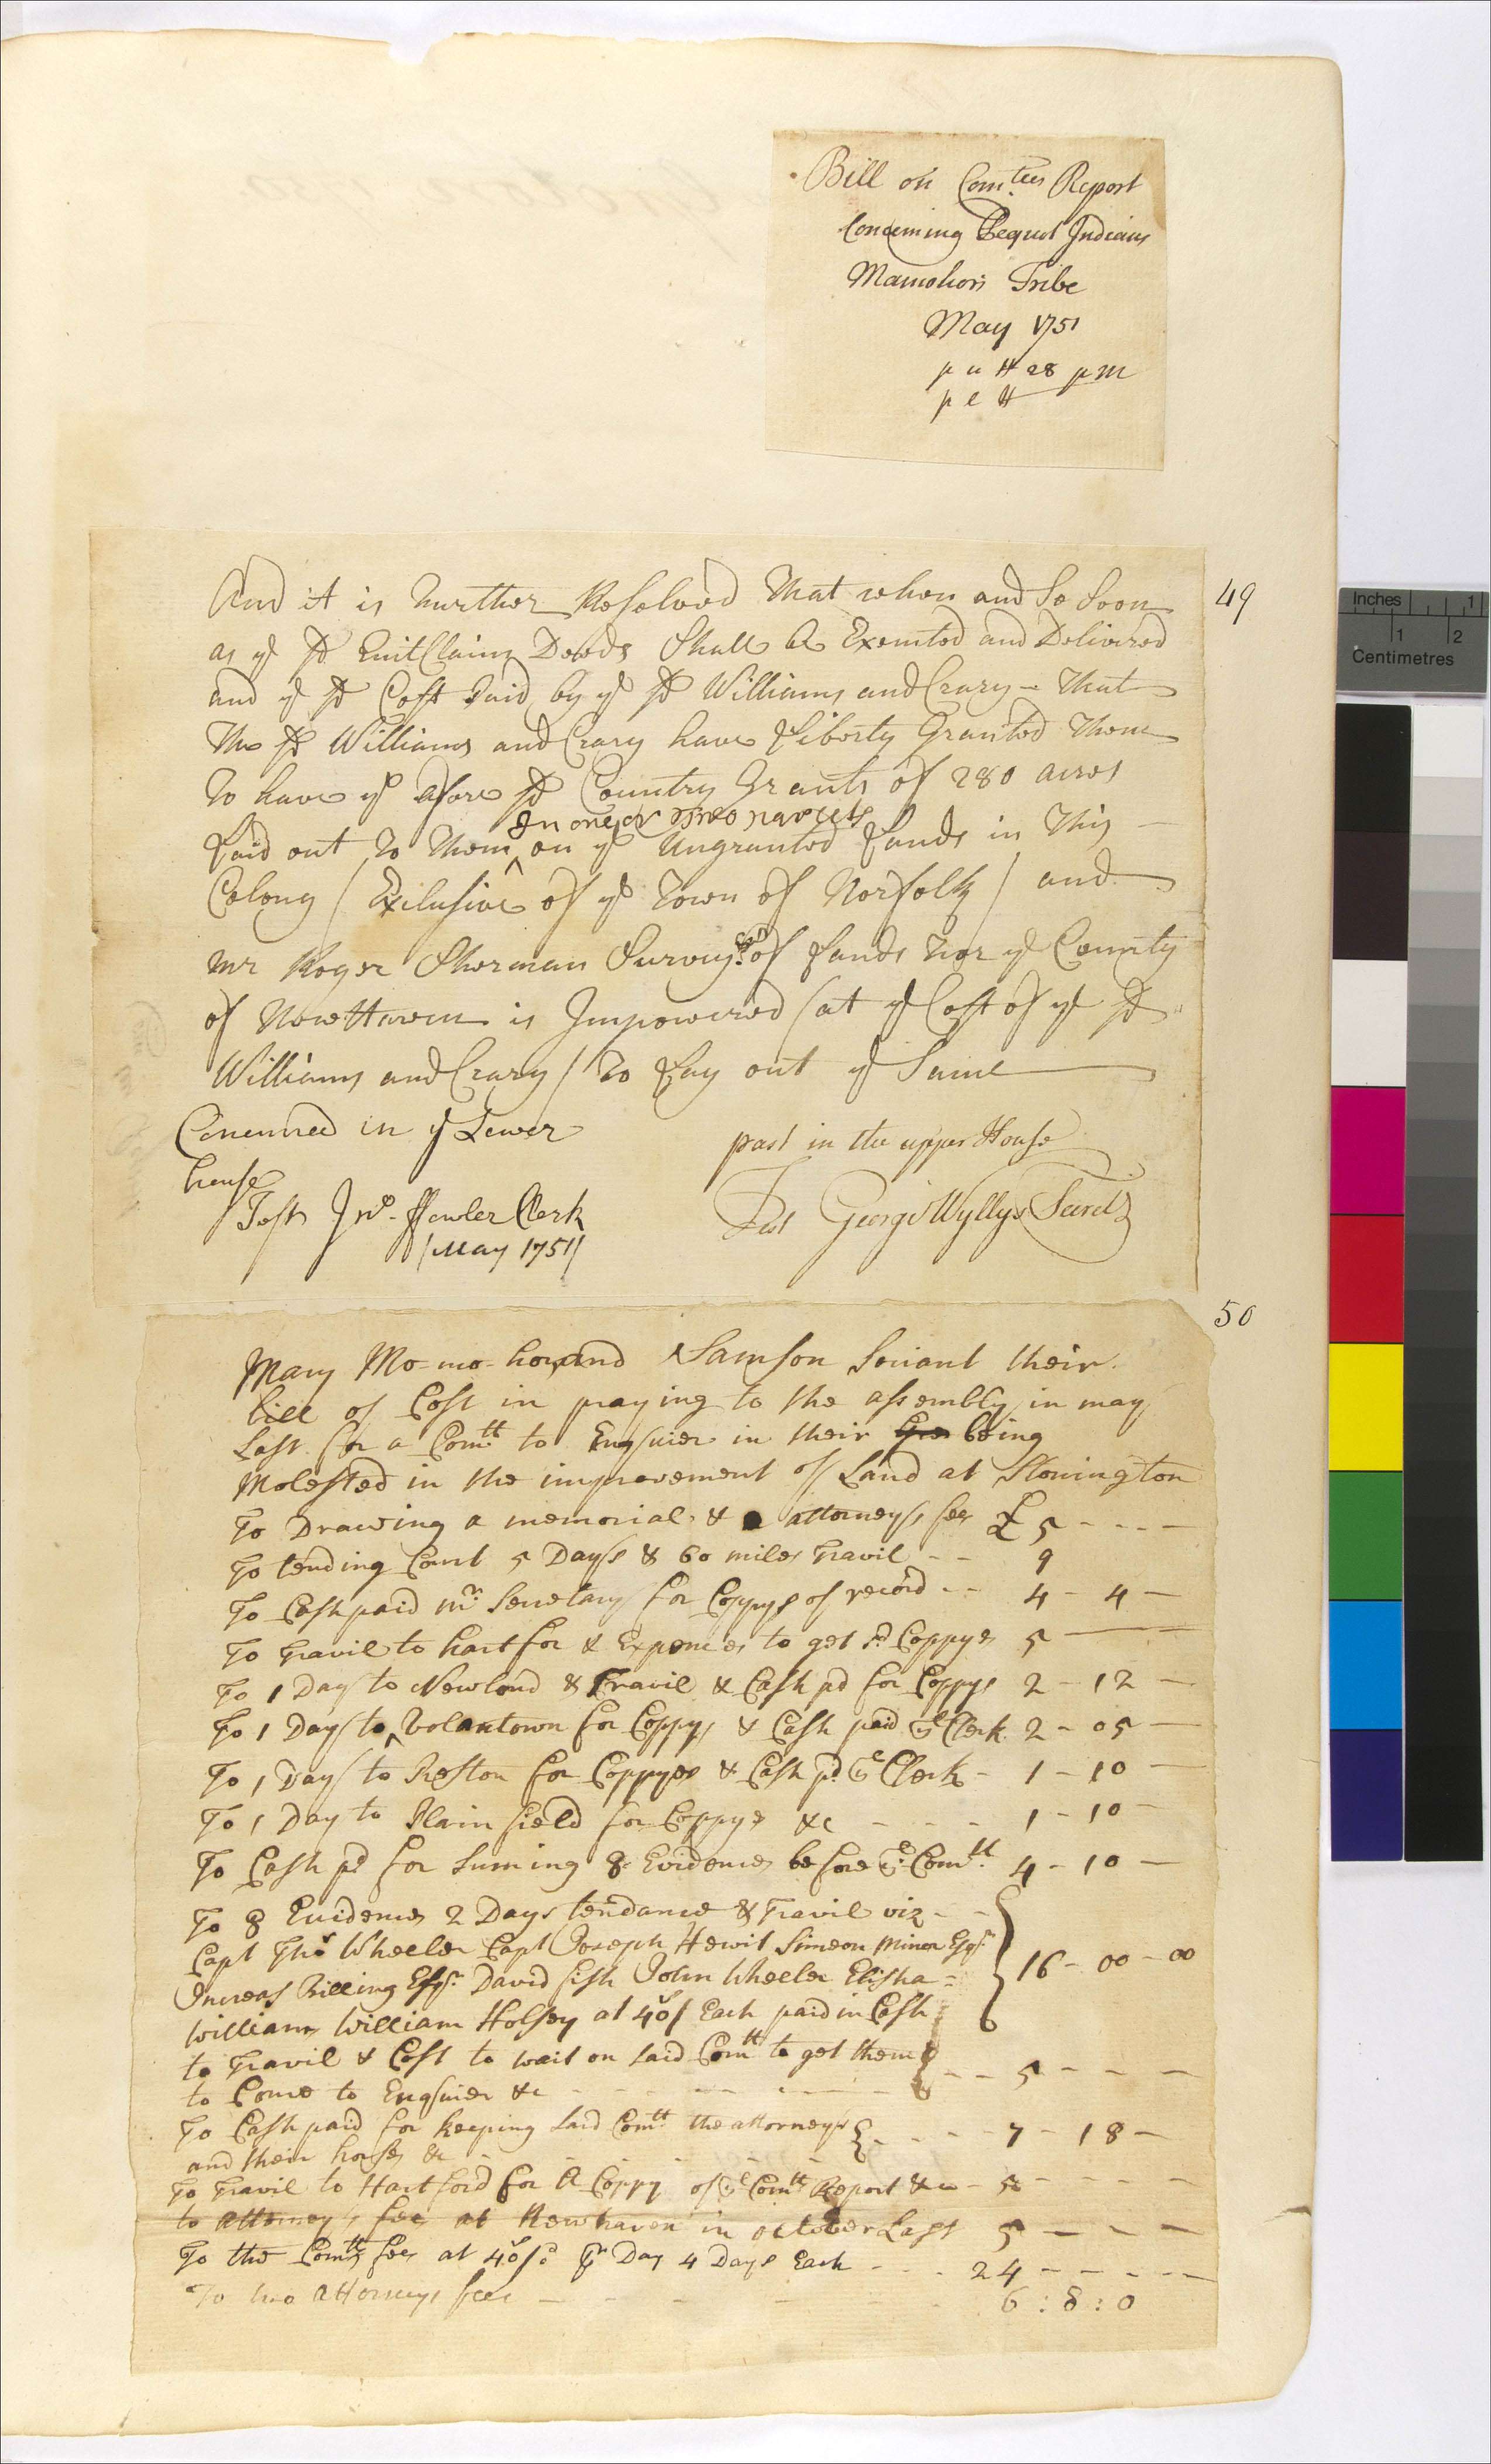 Bill on Com.tees Report
Concerning Pequot Indians
Mamohors Tribe
May 1751
p u H 28 p M
p l H
49
And it is further Resolved That when and So Soon
as ye sd Quit Claim Deeds Shall be Executed and Delivered
and ye sd Cost paid by ye sd Williams and Crary - That
The sd Williams and Crary have Liberty Granted Them
To have ye afore sd Country Grants of 280 acres
In one or two parcels
Laid out To Them ^ on ye Ungranted Lands in This
Colony / Exclusive of ye Town of Norfolk / and
mr Roger Sherman Survey.r of Lands for ye County
of New Haven is Impowered (at ye Cost of ye sd
Williams and Crary / To Lay out ye Same
Concurred in ye Lower
house
Test Jno. Fowler Clerk
/May 1751/
past in the upper House
Test George Wyllys Secret.
50
Mary Mo-mo-hor and Samson Soviant their
bill of Cost in praying to the assembly in may
Last for a Com.tt to Enquier in their being
Molested in the improvement of Land at Stonington
To Drawing a memorial & attorneys fee £ 5 - - - -
To tending Court 5 Days & 60 miles Travil - - 9
To Cash paid mr. Secretary for Coppys of record - - 4 - 4 -
To Travil to hartfor & Expences to get sd Coppyes 5 —
To 1 Day to Newlond & Travil & Cash pd for Coppys 2 - 12 -
To 1 Day to ^ Volentown for Coppys & Cash paid ye Clerk. 2 - 05 -
To 1 Day to Preston for Coppyes & Cash pd. ye Clerk - 1 - 10 -
To 1 Day to Plainfield for Coppys &c - - - - 1 - 10 -
To Cash pd for Suming 8 Evidences before ye Com.tt 4 - 10 -
To 8 Evidences 2 Days tendance & Travil viz - -
Capt Thos Wheeler Capt Joseph Hewit Simeon Miner Esqr.
Increas Billing Esqr. David fish John Wheeler Elisha = 16 - 00 - 00
Williams William Holsey at 40s/ Each paid in Cash
to Travil & Cost to wait on said Comtt to get them
to Come to Enquier &c - - - - - - 5 - - -
To Cash paid for keeping said Comtt. the attorneys - - - - 7 - 18 -
and their horses &c -
To Travil to Hartford for a Coppy of ye Comtt Report &c - 5 - - - -
to attorneys fees at Newhaven in october Last 5 - - -
To the Comtts fees at 40s/ pr Day 4 Days Each - - - 24 - - - - -
To two attorneys fees - - - - 6 : 8 : 0